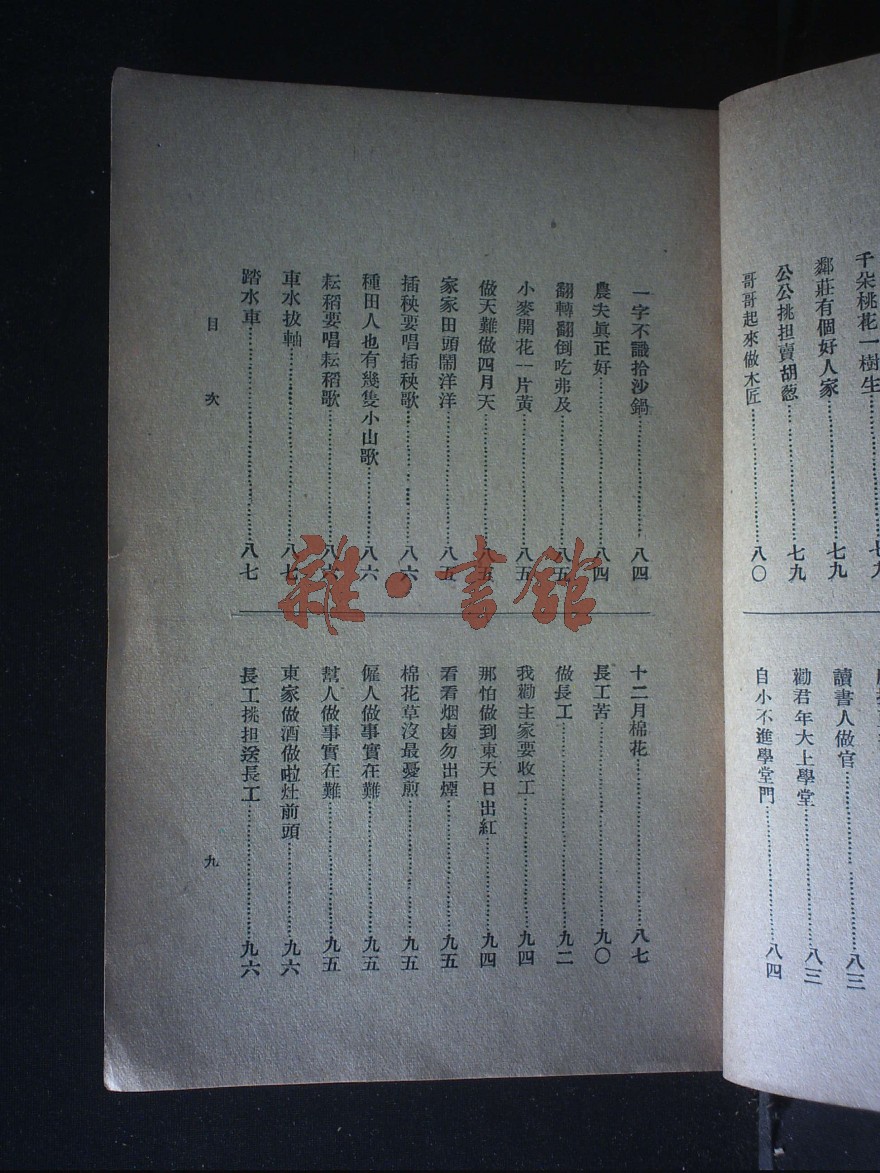 千朵桃花一樹生…………七九
鄰莊有個好人家…………七九
公公挑担賣胡葱…………七九
哥哥起來做木匠…………八〇
讀書人做官…………八三
勸君年大上學堂…………八三
自小不進學堂門…………八四
一字不識拾沙鍋…………八四
農夫眞正好…………八四
翻轉翻倒吃弗及…………八五
小麥開花一片黃…………八五
做天難做四月天…………八五
家家田頭鬧洋洋…………八五
插秧要唱插秧歌…………八六
種田人也有幾隻小山歌…………八六
耘稻要唱耘稻歌…………八六
車水拔軸…………八七
踏水車…………八七
十二月棉花…………八七
長工苦…………九〇
做長工…………九二
我勸主家要收工…………九四
那怕做到東天日出紅…………九四
看看烟卤勿出煙…………九五
棉花草沒最憂煎…………九五
僱人做事實在難…………九五
幫人做事實在難…………九五
東家做酒做啦灶前頭…………九六
長工挑担送長工…………九六
目次
九
雜·書館